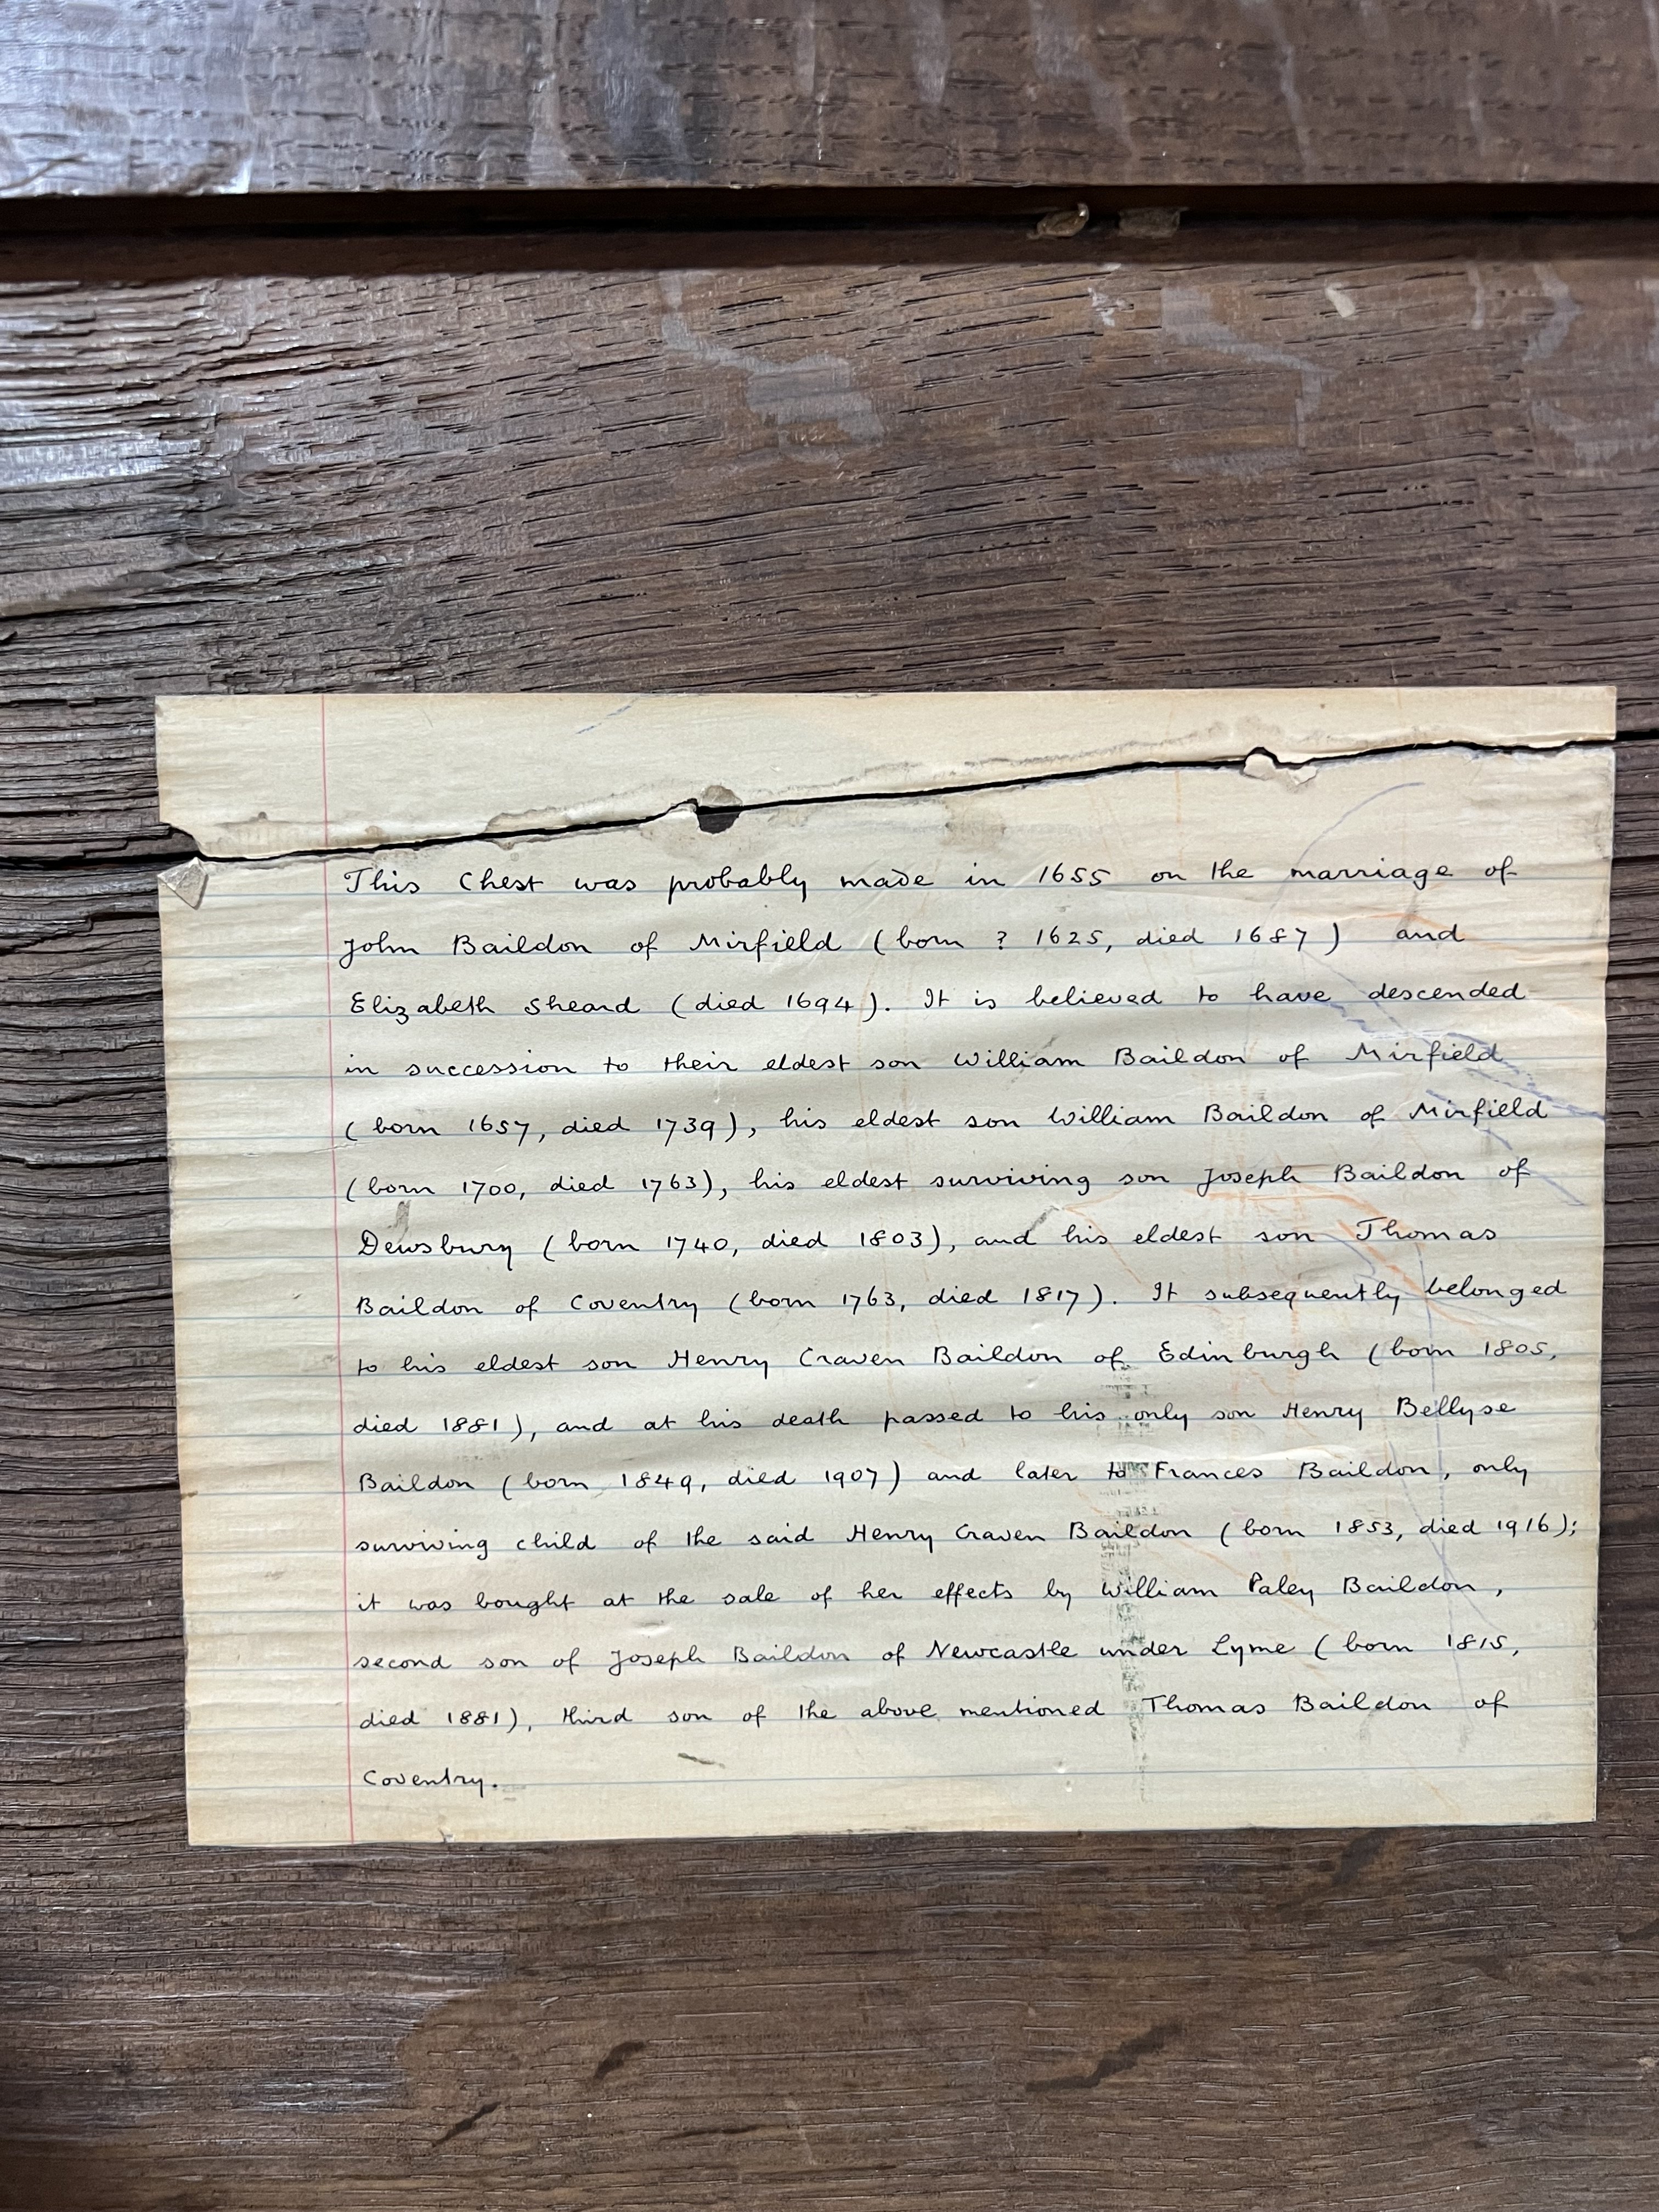 This Chest was probably made in 1655 on the marriage of
John Baildon of Mirfield (born ? 1625, died 1687) and
Elizabeth Sheard (died 1694). It is believed to have descended
in succession to their eldest son William Baildon of Mirfield
(born 1657, died 1739), his eldest son William Baildon of Mirfield
(born 1700, died 1763), his eldest surviving son Joseph Baildon of
Dewsbury (born 1740, died 1803), and his eldest son Thomas
Baildon of Coventry (born 1763, died 1817). It subsequently belonged
to his eldest son Henry Craven Baildon of Edinburgh (born 1805,
died 1881), and at his death passed to his only son Henry Bellyse
Baildon (born 1849, died 1907) and later to Frances Baildon, only
surviving child of the said Henry Craven Baildon (born 1853, died 1916);
it was bought at the sale of her effects by William Paley Baildon,
second son of Joseph Baildon of Newcastle under Lyme (born 1815,
died 1881), third son of the above mentioned Thomas Baildon of
Coventry.